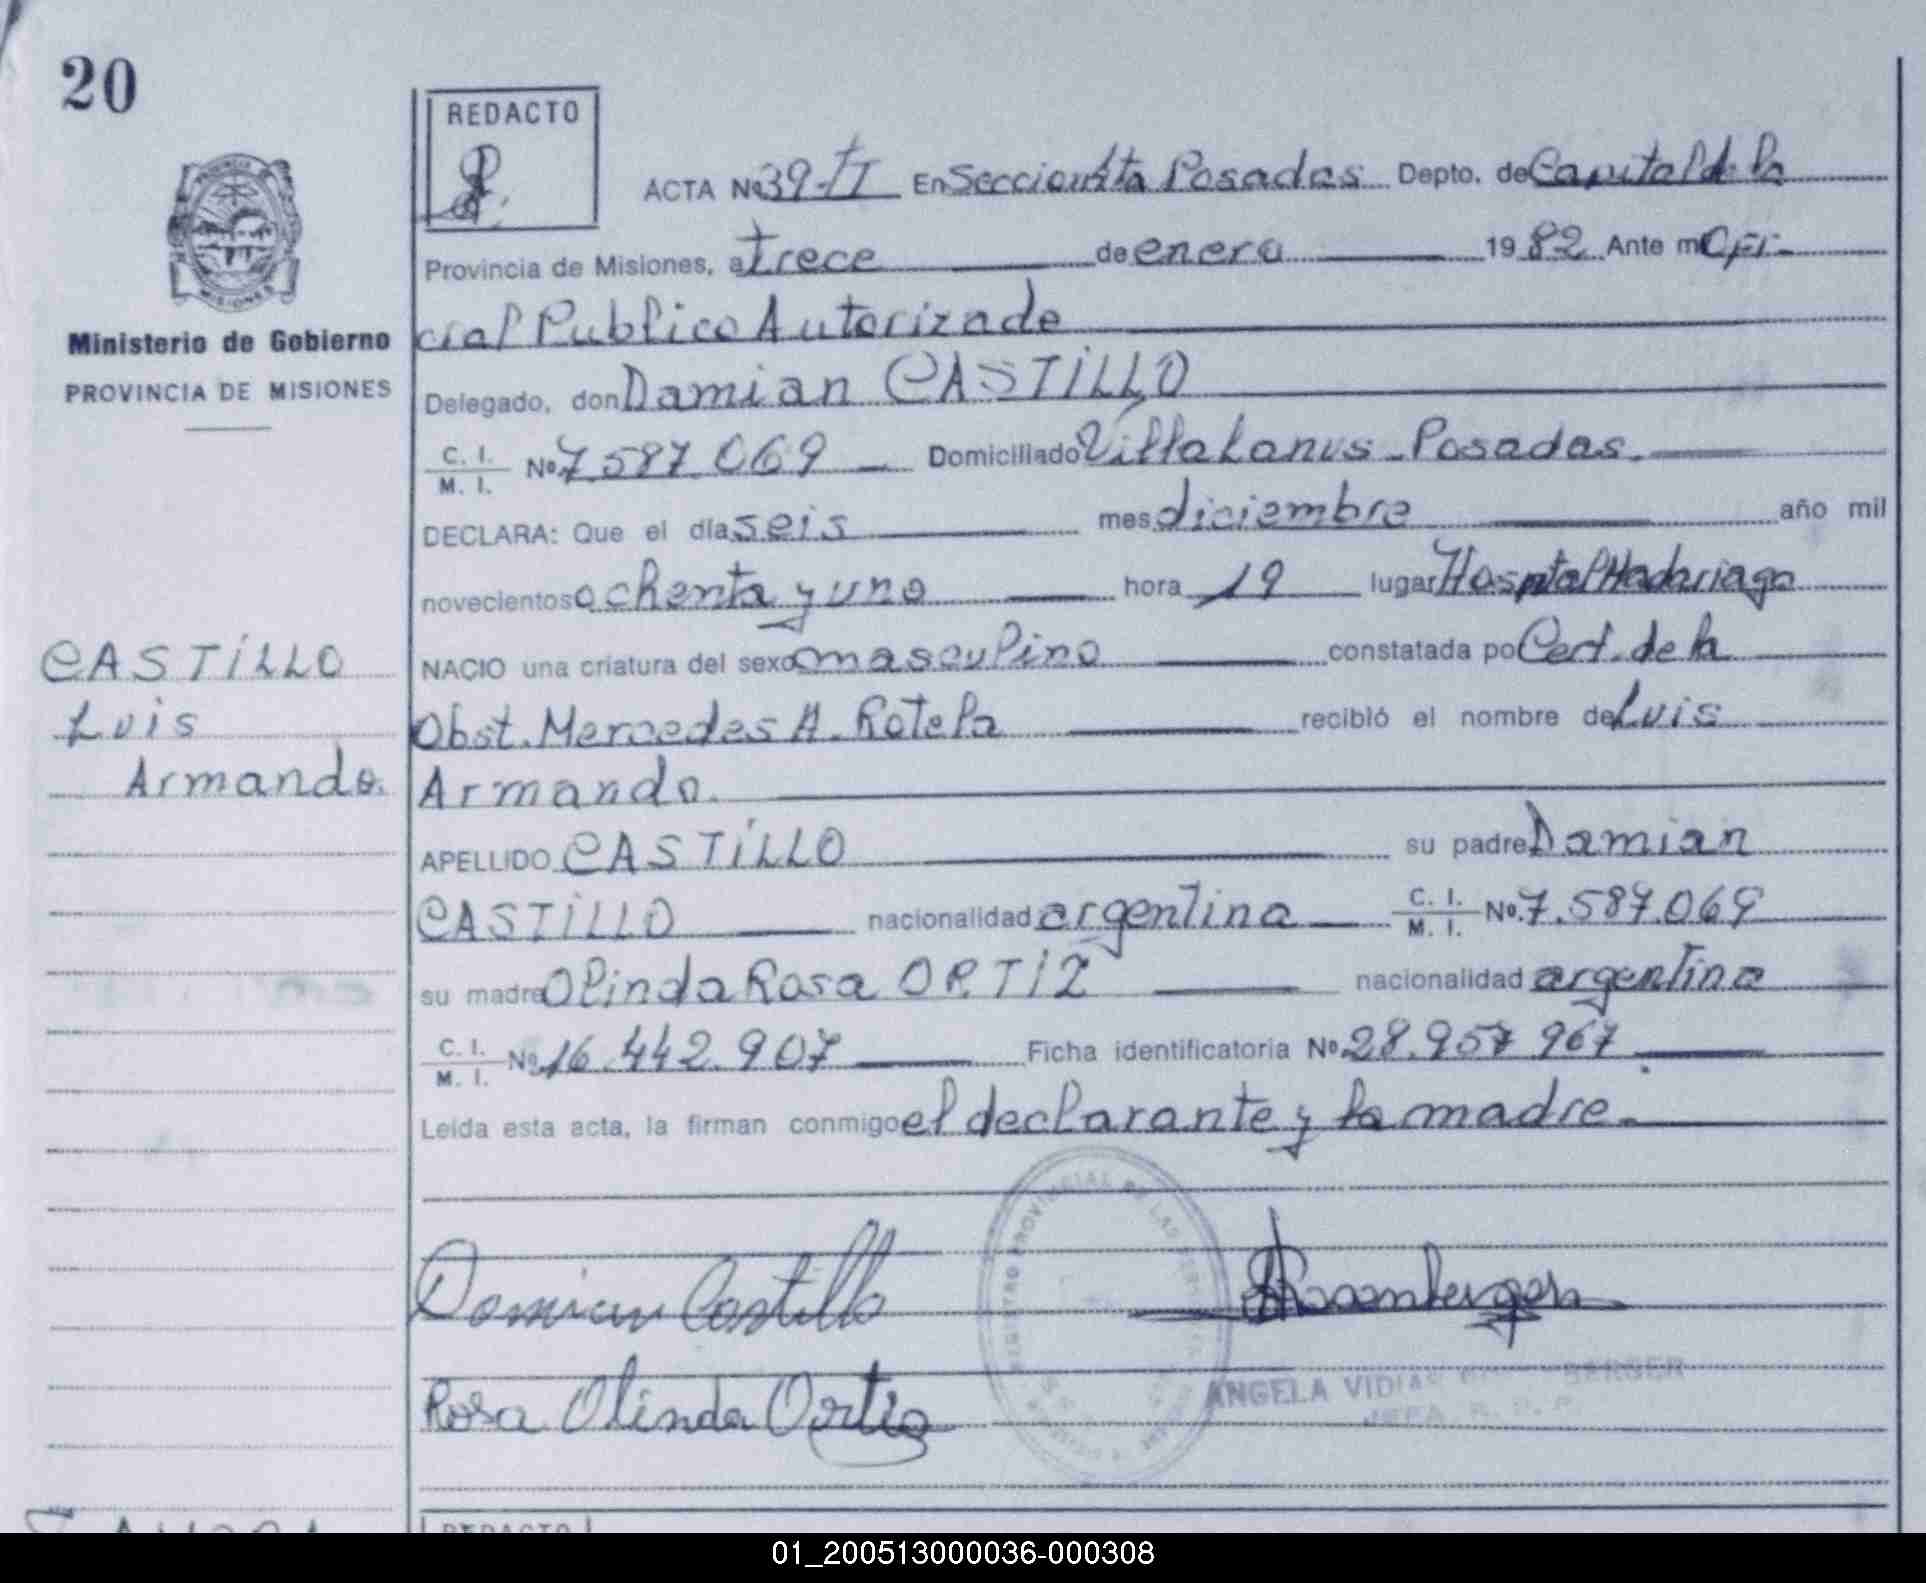 20
REDACTO
ACTA Nº 39-TI En Sección 4ta Posadas Depto. de Capital de la
Provincia de Misiones, a trece de enero 1982 Ante mí Ofi-
cial Publico Autorizado
Ministerio de Gobierno
PROVINCIA DE MISIONES
Delegado, don Damian CASTILLO
C. I.
M. I. Nº 7.587.069 Domiciliado Villa Lanus - Posadas.
DECLARA: Que el día seis mes diciembre año mil
novecientos ochenta y uno hora 19 lugar Hospital Madariaga
NACIO una criatura del sexo masculino constatada po Cert. de la
Obst. Mercedes A. Rotela recibió el nombre de Luis
Armando.
CASTILLO
Luis
Armando.
APELLIDO CASTILLO su padre Damian
CASTILLO nacionalidad argentina C. I.
M. I. Nº 7.587.069
su madre Olinda Rosa ORTIZ nacionalidad argentina
C. I.
M. I. Nº 16.442.907 Ficha identificatoria Nº 28.957 967.
Leída esta acta, la firman conmigo el declarante y la madre.
Damian Castillo
Rosa Olinda Ortiz
REGISTRO PROVINCIAL DE LAS PERSONAS
ANGELA VIDIA BERGER
JEFA R. P. P.
REDACTO
01_200513000036-000308